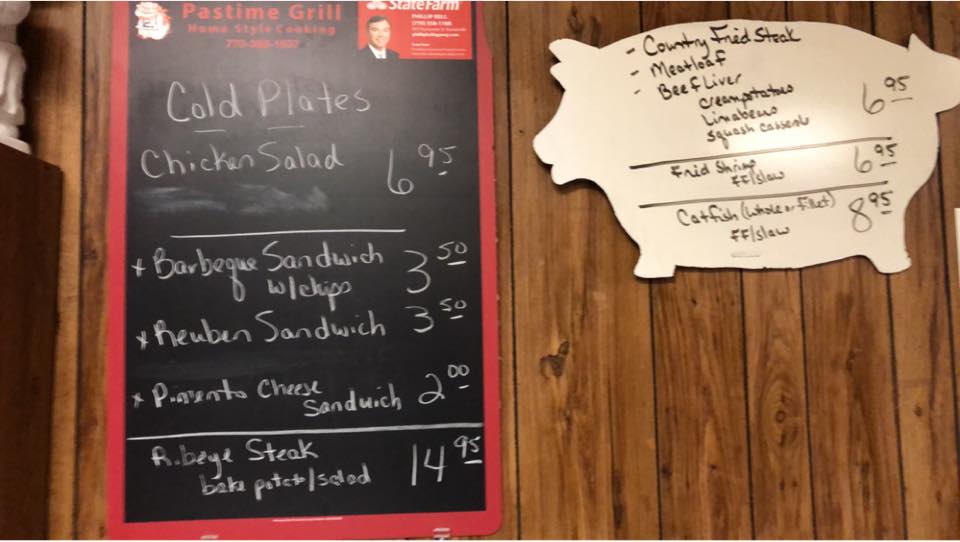 Pastime Grill
Home Style Cooking
StateFarm
PHILLIP BELL
Cold Plates
Chicken Salad 6 95
* Barbeque Sandwich 3 50
w/chips
* Reuben Sandwich 3 50
* Pimento Cheese 2 00
Sandwich
Ribeye Steak 14 95
bake potato/salad
- Country Fried Steak
- Meatloaf
- Beef Liver 6 95
Creampotatoes
Limabeans
Squash Casserole
Fried Shrimp 6 95
FF/slaw
Catfish (Whole or Fillet) 8 95
FF/slaw